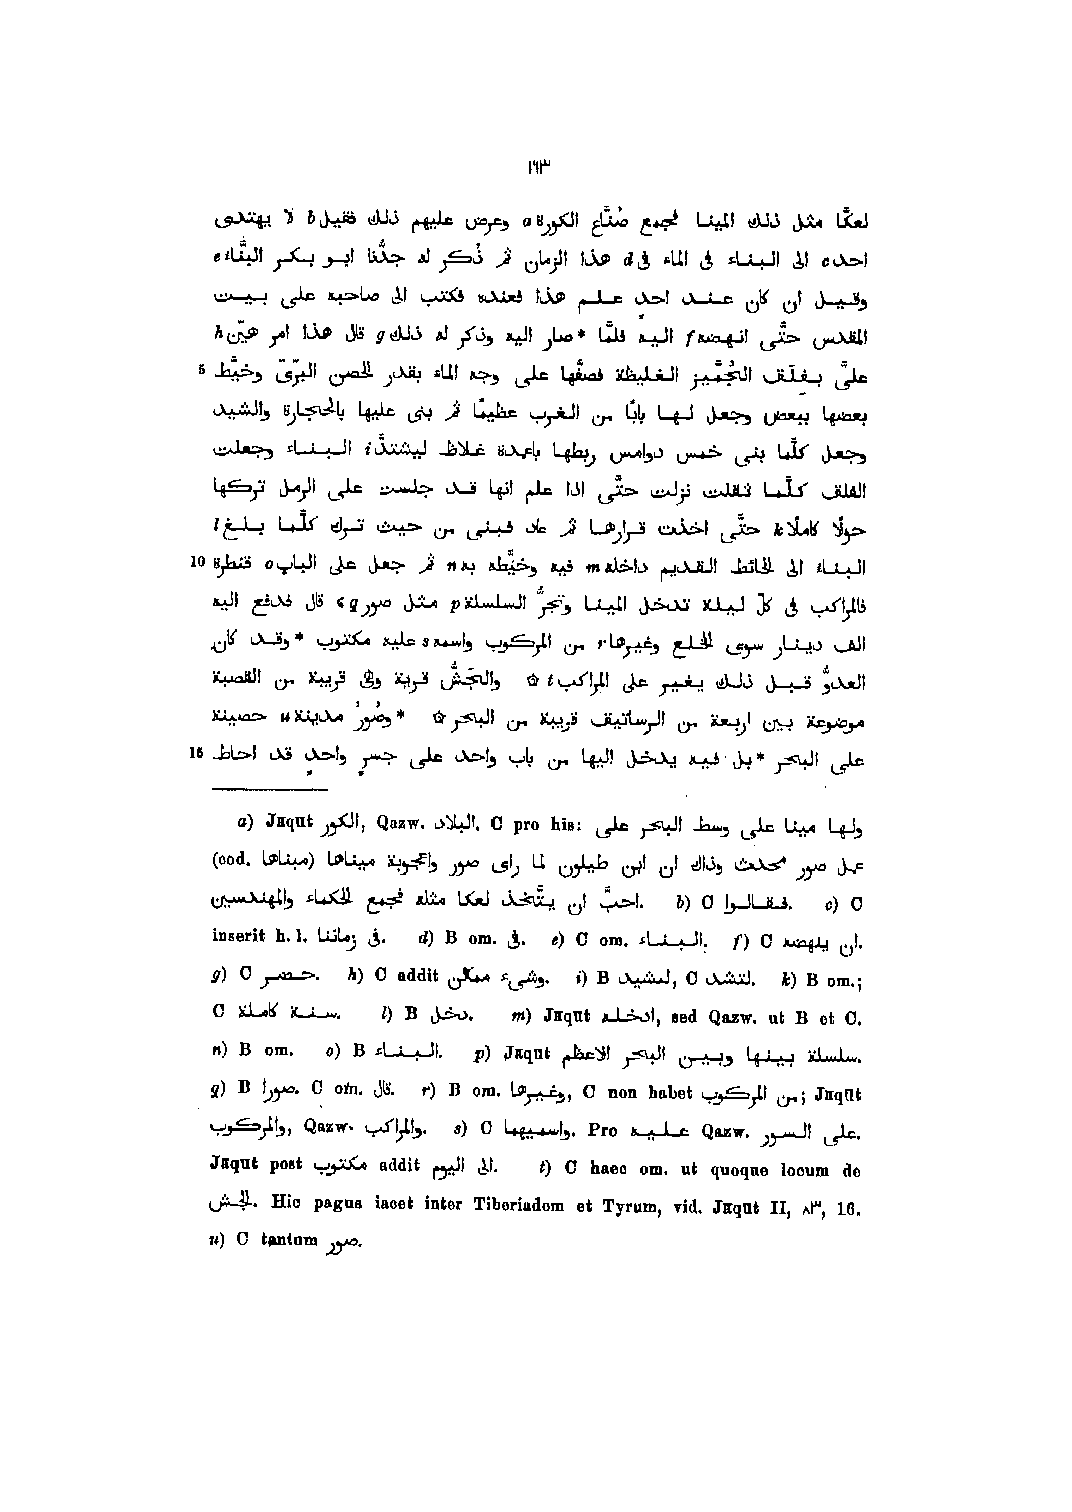 ١٦٣
لعكّا مثل ذلك المينا فجمع صُنَّاع الكورة a وعرض عليهم ذلك فقيل b لا يهتدى
احد c الى البناء فى الماء فى d هذا الزمان ثم ذُكر له جدُّنا ابو بكر البنَّاء e
وقيل ان كان عند احد علم هذا فعنده فكتب الى صاحبه على بيت
المقدس حتَّى انهضه f اليه فلمَّا *صار اليه وذكر له ذلك g قال هذا امر هيّن h
5 علىَّ بفلق الجُمَّيز الغليظة فصفّها على وجه الماء بقدر الحصن البرّىّ وخيَّط
بعضها ببعض وجعل لها بابًا من الغرب عظيمًا ثم بنى عليها بالحجارة والشيد
وجعل كلَّما بنى خمس دوامس ربطها باعمدة غلاظ ليشتدَّ i البناء وجعلت
الفلق كلَّما ثقلت نزلت حتَّى اذا علم انها قد جلست على الرمل تركها
حولًا كاملًا k حتَّى اخذت قرارها ثم عاد فبنى من حيث ترك كلَّما بلغ l
10 البناء الى الحائط القديم داخله m فيه وخيَّطه به n ثم جعل على الباب o قنطرة
فالمراكب فى كل ليلة تدخل المينا وتجرُّ السلسلة p مثل صور q، قال فدفع اليه
الف دينار سوى الخلع وغيرها r من المركوب واسمه s عليه مكتوب *وقد كان
العدوُّ قبل ذلك يغير على المراكب t ۞ والجَشُّ قرية وفى قريبة من القصبة
موضوعة بين اربعة من الرساتيف قريبة من البحر ۞ *وصُورُ مدينة u حصينة
15 على البحر *بل فيه يدخل اليها من باب واحد على جسرٍ واحدٍ قد احاط
a) Jaqut الكور, Qazw. البلاد. C pro his: ولها مينا على وسط البحر على
عمل صور محدث وذاك ان ابن طيلون لما راى صور واعجوبة ميناها (cod. مبناها)
احبَّ ان يتَّخذ لعكا مثله فجمع الحكماء والمهندسين. b) C فقالوا. c) C
inserit h. l. فى زماننا. d) B om. فى. e) C om. البناء. f) C ان ينهضه.
g) C حضر. h) C addit وشىء ممكن. i) B ليشيد, C لتشد. k) B om.;
C سنة كاملة. l) B دخل. m) Jaqut ادخله, sed Qazw. ut B et C.
n) B om. o) B البناء. p) Jaqut سلسلة بينها وبين البحر الاعظم.
q) B صورا. C om. قال. r) B om. وغيرها, C non habet من المركوب; Jaqut
والمركوب, Qazw. والمراكب. s) C واسميها. Pro عليه Qazw. على السور.
Jaqut post مكتوب addit الى اليوم. t) C haec om. ut quoque locum de
الجش. Hic pagus iacet inter Tiberiadem et Tyrum, vid. Jaqut II, ٨٣, 16.
u) C tantum صور.